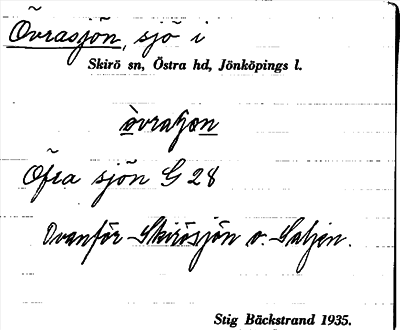 Övrasjön, sjö i
Skirö sn, Östra hd, Jönköpings l.
òvraʃɷn
Öfra sjön G 28
Ovanför Skirösjön o. Saljen.
Stig Bäckstrand 1935.